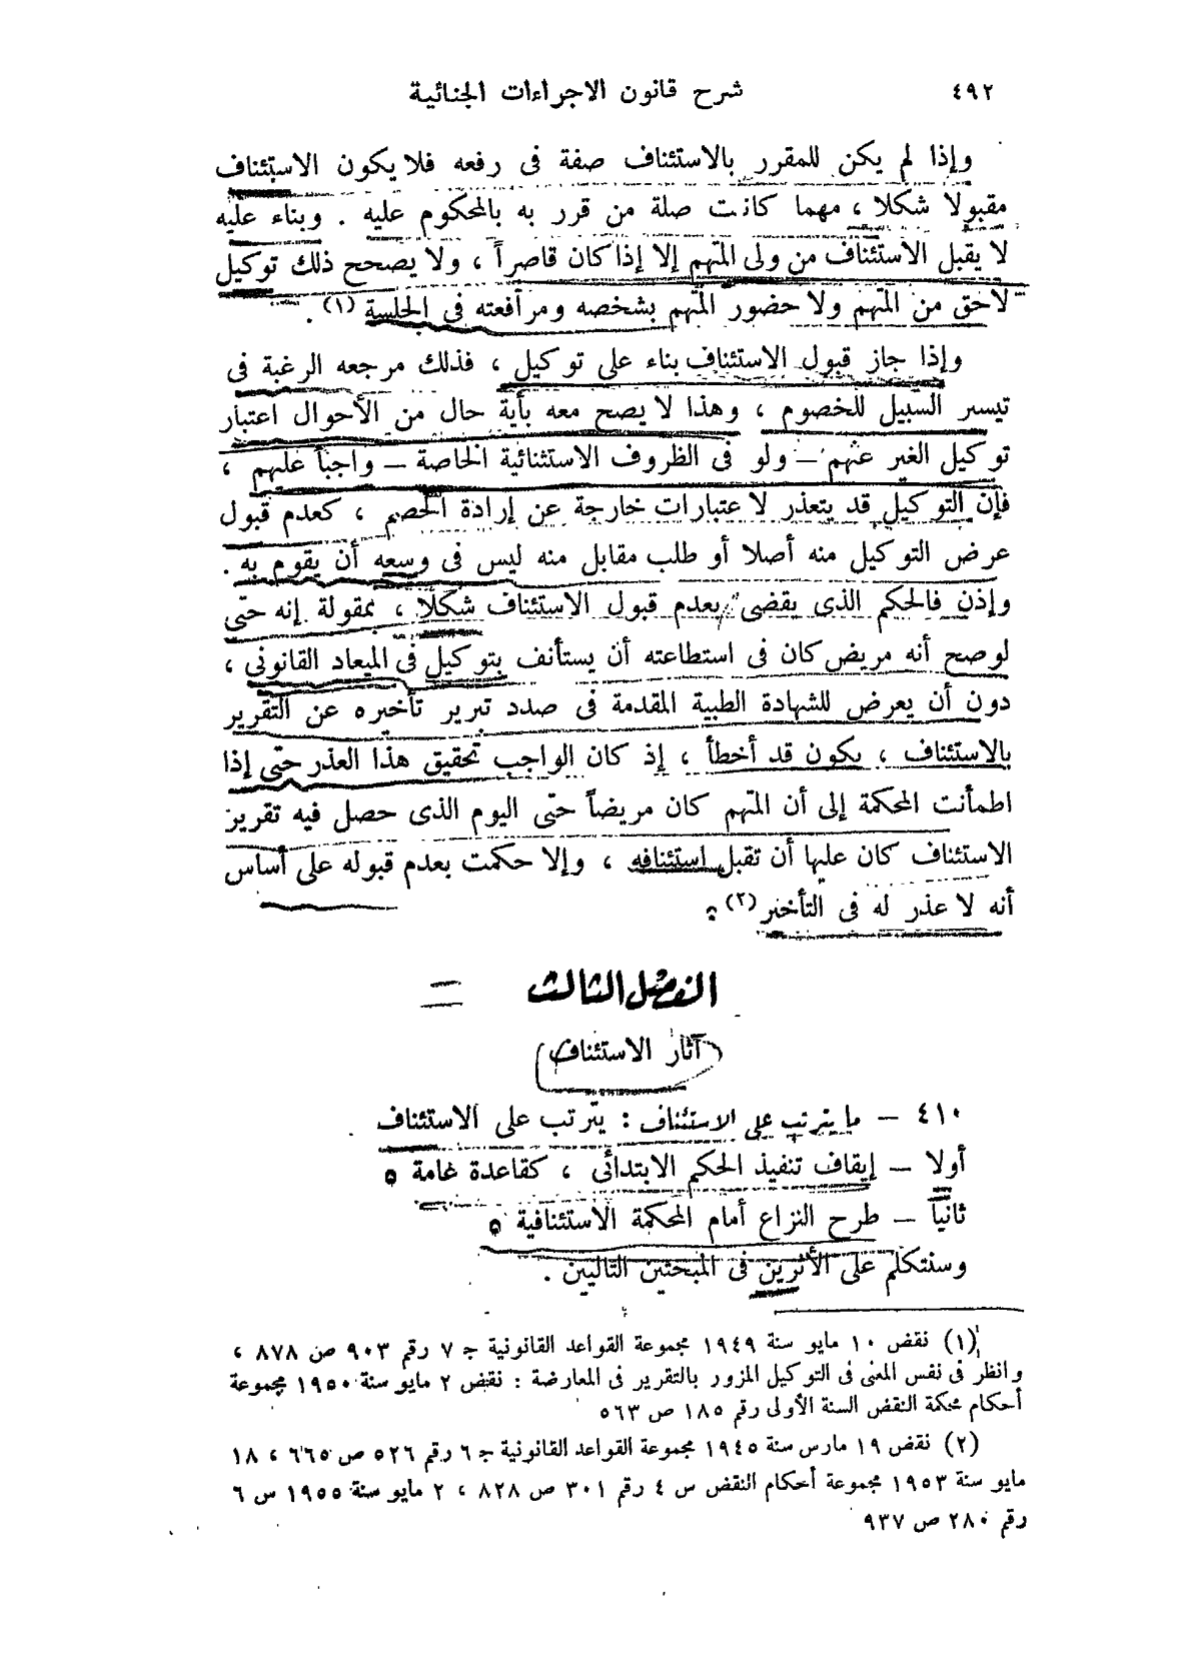 ٤٩٢
شرح قانون الاجراءات الجنائية
وإذا لم يكن للمقرر بالاستئناف صفة فى رفعه فلا يكون الاستئناف
مقبولا شكلا ، مهما كانت صلة من قرر به بالمحكوم عليه . وبناء عليه
لا يقبل الاستئناف من ولى المتهم إلا إذا كان قاصراً ، ولا يصحح ذلك توكيل
لاحق من المتهم ولا حضور المتهم بشخصه ومرافعته فى الجلسة (١) .
وإذا جاز قبول الاستئناف بناء على توكيل ، فذلك مرجعه الرغبة فى
تيسير السبيل للخصوم ، وهذا لا يصح معه بأية حال من الأحوال اعتبار
توكيل الغير عنهم – ولو فى الظروف الاستثنائية الخاصة – واجباً عليهم ،
فإن التوكيل قد يتعذر لاعتبارات خارجة عن إرادة الخصم ، كعدم قبول
عرض التوكيل منه أصلا أو طلب مقابل منه ليس فى وسعه أن يقوم به .
وإذن فالحكم الذى يقضى بعدم قبول الاستئناف شكلا ، بمقولة إنه حتى
لو صح أنه مريض كان فى استطاعته أن يستأنف بتوكيل فى الميعاد القانونى ،
دون أن يعرض للشهادة الطبية المقدمة فى صدد تبرير تأخيره عن التقرير
بالاستئناف ، يكون قد أخطأ ، إذ كان الواجب تحقيق هذا العذر حتى إذا
اطمأنت المحكمة إلى أن المتهم كان مريضاً حتى اليوم الذى حصل فيه تقرير
الاستئناف كان عليها أن تقبل استئنافه ، وإلا حكمت بعدم قبوله على أساس
أنه لا عذر له فى التأخير (٢) .
الفصل الثالث
آثار الاستئناف
٤١٠ – ما يترتب على الاستئناف : يترتب على الاستئناف
أولا – إيقاف تنفيذ الحكم الابتدائى ، كقاعدة عامة .
ثانياً – طرح النزاع أمام المحكمة الاستئنافية .
وسنتكلم على الأثرين فى المبحثين التاليين .
(١) نقض ١٠ مايو سنة ١٩٤٩ مجموعة القواعد القانونية ج ٧ رقم ٩٠٣ ص ٨٧٨ ،
وانظر فى نفس المعنى فى التوكيل المزور بالتقرير فى المعارضة : نقض ٢ مايو سنة ١٩٥٠ مجموعة
أحكام محكمة النقض السنة الأولى رقم ١٨٥ ص ٥٦٣
(٢) نقض ١٩ مارس سنة ١٩٤٥ مجموعة القواعد القانونية ج ٦ رقم ٥٢٦ ص ٦٦٥ ، ١٨
مايو سنة ١٩٥٣ مجموعة أحكام النقض س ٤ رقم ٣٠١ ص ٨٢٨ ، ٢ مايو سنة ١٩٥٥ س ٦
رقم ٢٨٠ ص ٩٣٧